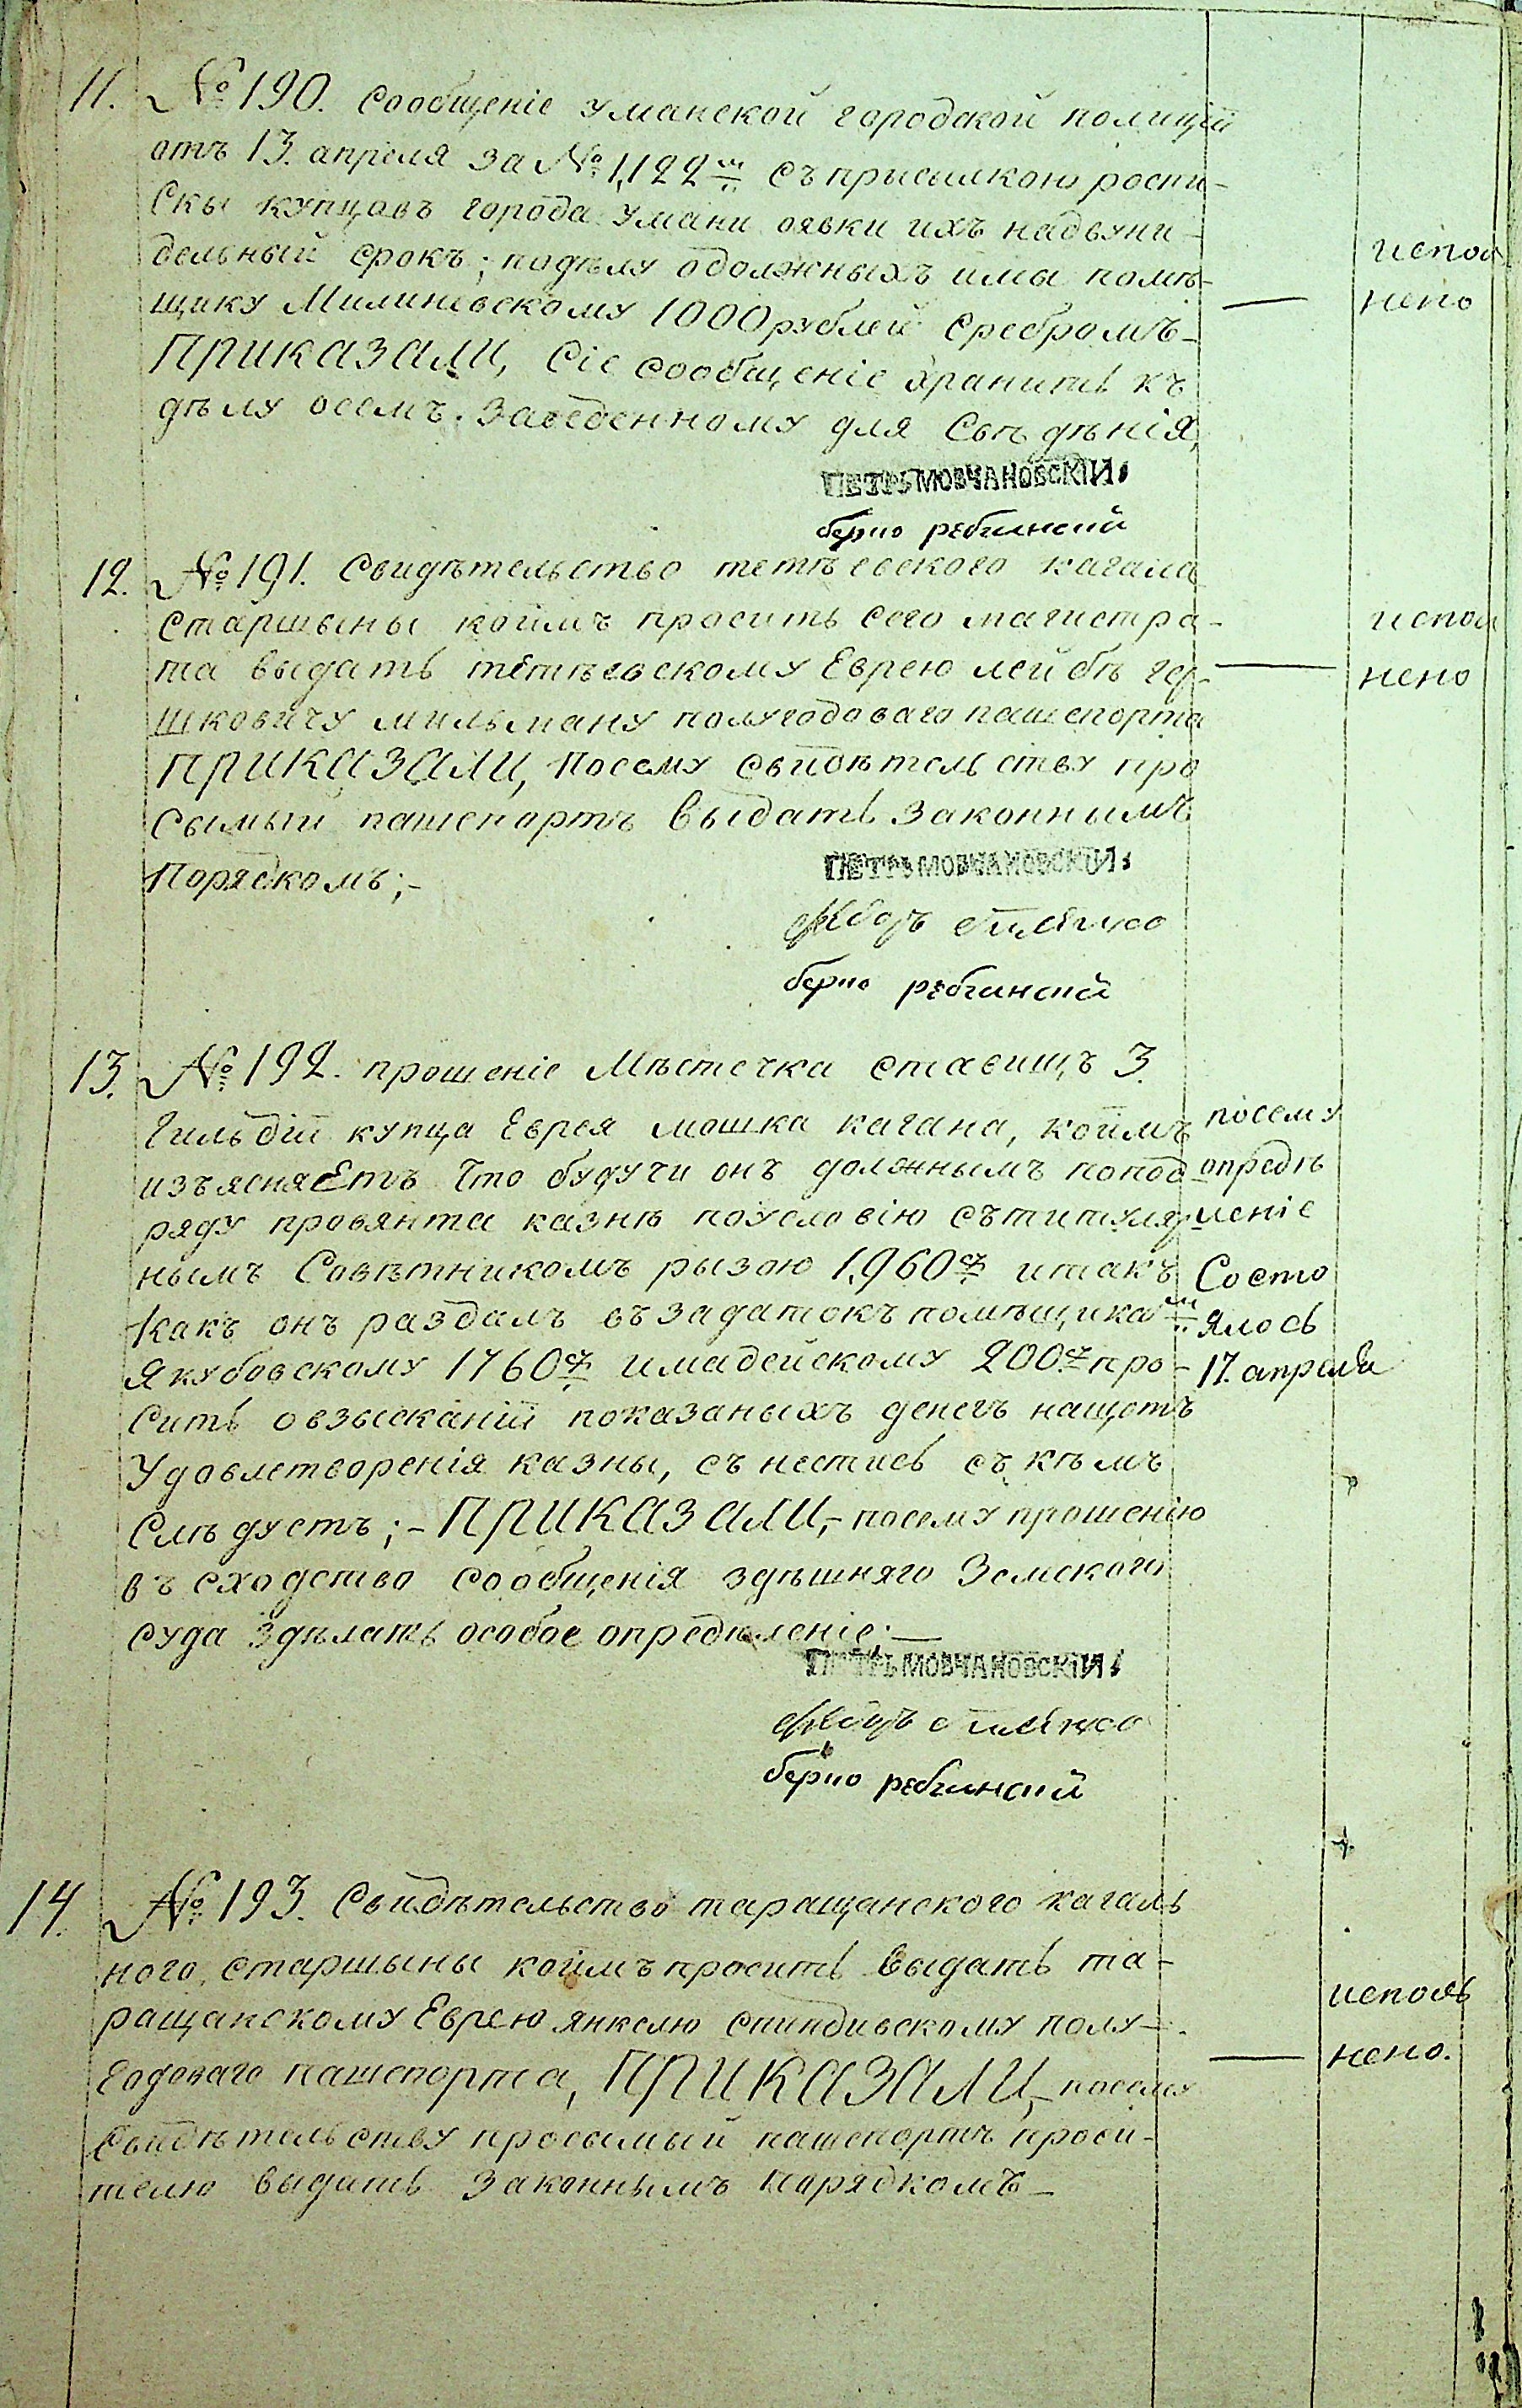 11. № 190. Сообщеніе Уманской городской полицій
отъ 13. апреля за № 1,122м съ присылкою роспи-
Скы купцовъ города Умани оявки ихъ надвуни-
дельный срокъ; подѣлу одолжныхъ имы помѣ-
щику Милинѣвскому 1000 рублей сребромъ-
ПРИКАЗАЛИ, Сіе сообщеніе хранить къ
дѣлу осемъ. Заведенному для Свѣдѣнія,
испол
нено
ПЕТРЪ МОВЧАНОВСКІЙ
берко ребинскій
12. № 191. Свидѣтельство тетѣевского кагала
старшыны коимъ просить Сего магистра-
та выдать тетѣевскому Еврею лейбѣ гер-
шковичу мильману полугодоваго пашепорта
ПРИКАЗАЛИ, Посему свидѣтельству про
Сымый пашепортъ выдать законнымъ
Порядкомъ;-
испол
нено
ПЕТРЪ МОВЧАНОВСКІЙ
берко ребинскій
13. № 192. прошеніе Мѣстечка ставищъ 3.
Гильдій купца Еврея мошка кагана, коимъ
изъясняЕтъ что будучи онъ долженнымъ попод
ряду провянта казнѣ поусловію сътитуляр
нымъ Совѣтникомъ рызою 1,960 итакъ
какъ онъ раздалъ въ задатокъ помѣщикам
Якубовскому 1760 имадейскому 200 про-
Сить овзысканій показаныхъ денегъ нащотъ
Удовлетворенія казны, съ нестись съ кѣмъ
Слѣдуетъ;- ПРИКАЗАЛИ,- посему прошенію
въ сходство сообщенія здѣшняго Земского
суда здѣлать особое опредѣленіе.—
посему
опредѣ
леніе
Состо
ялось
17. апреля
ПЕТРЪ МОВЧАНОВСКІЙ
берко ребинскій
14. № 193. Свидѣтельство таращанского кагаль
ного старшыны коимъ просить выдать та-
ращанскому Еврею янкелю спиндивскому полу-
годоваго пашепорта, ПРИКАЗАЛИ,- посему
Свидѣтельству просымый пашепортъ проси-
телю выдать законнымъ порядкомъ-
исполь
нено.